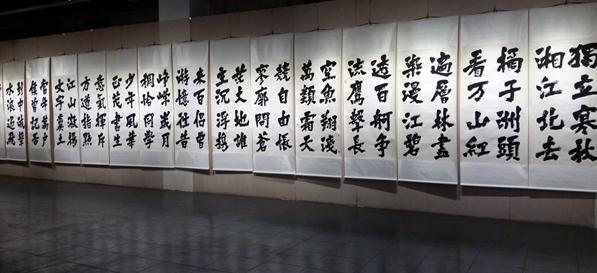 獨立寒秋
湘江北去
橘子洲頭
看万山紅
遍層林盡
染漫江碧
透百舸争
流鷹擊長
空魚翔淺
萬類霜天
競自由悵
寥廓問蒼
茫大地誰
主沉浮携
來百侶曾
游憶往昔
崢嶸歲月
稠恰同學
少年風華
正茂書生
意氣揮斥
方遒指點
江山激揚
文字糞土
當年萬户
侯曾記否
到中流擊
水浪遏飛